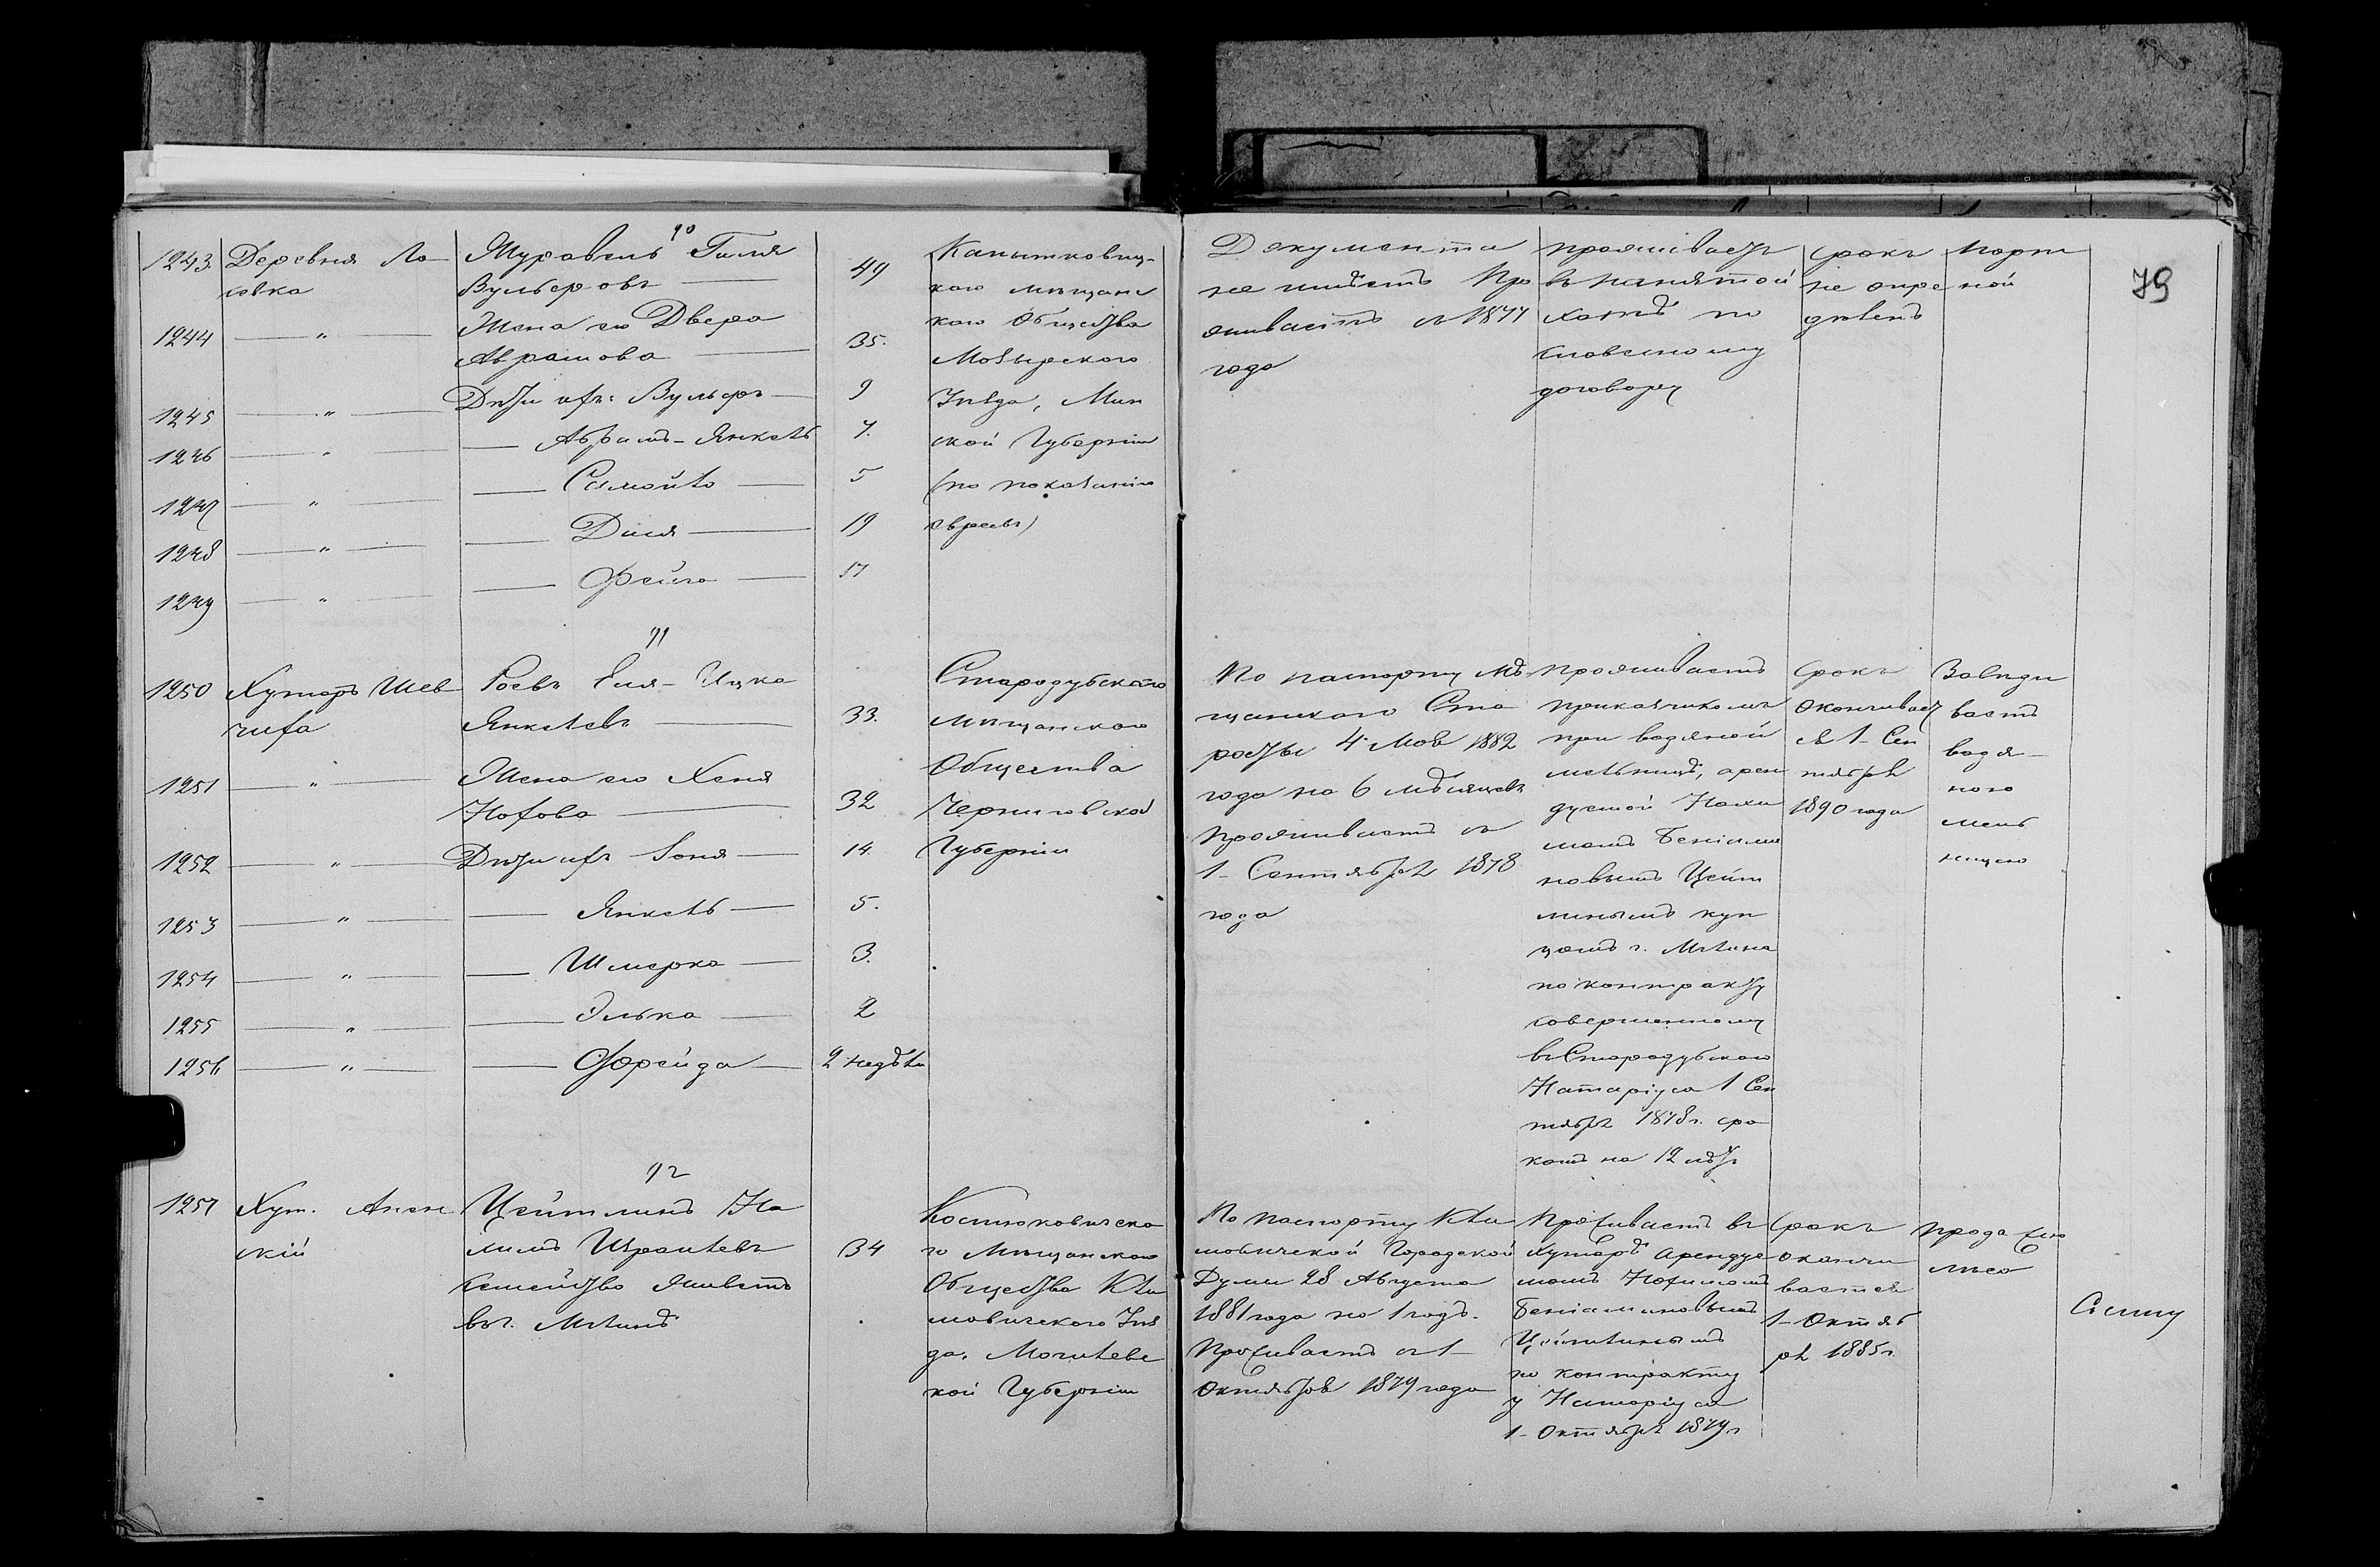 79
90
1243. Деревня Ло-
ковка
Журавель Гиля
Вульфовъ
49
Капытковиц-
каго мѣщанс
каго Общества
Мозырскаго
Уѣзда, Мин
ской Губерніи
(по показанію
евреевъ)
Документа
не имѣетъ Про
живаетъ съ 1877
года
проживаетъ
въ нанятой
хатѣ по
словесному
договору
срокъ
не опре
дѣленъ
Порт
ной
1244 — " — Жена его Двера
Абрамова — 35.
1245 — " — Дѣти ихъ: Вульфъ — 9
1246 — " — Абрамъ-Янкель 7.
1247 — " — Самойло — 5
1248 — " — Диля — 19
1249 — " — Фейга — 17
91
1250 Хуторъ Шев
чиха
Роевъ Еля-Ицка
Янкелевъ — 33.
Стародубскаго
мѣщанскаго
Общества
Черниговской
Губерніи
По паспорту Мѣ
щанскаго Ста
росты 4 Мая 1882
года на 6 мѣсяцевъ
проживаетъ съ
1 - Сентября 1878
года
проживаетъ
прикащикомъ
при водяной
мельницѣ, арен
дуемой Нохи
момъ Беніами
новымъ Цейт
линымъ куп
цомъ г. Мглина
по контракту
совершенному
въ Стародубскаго
Натаріуса 1 Сен
тября 1878 г. сро
комъ на 12 лѣтъ
Срокъ
окончивает
ся 1 - Сен
тября
1890 года
Завѣды
ваетъ
водя-
ною
мель
ницею
1251 — " — Жена его Хеня
Нохова — 32
1252 — " — Дѣти ихъ Соня — 14.
1253 — " — Янкель — 5.
1254 — " — Шмерка — 3.
1255 — " — Элька — 2
1256 — " — Фрейда — 2 недѣли
92
1257 Хут.
скій
Цейтлинъ На
Израилевъ
семейство живетъ
въ г. Мглинѣ
34
Костюковичска
го Мѣщанскаго
Общества Кли
мовичскаго Уѣз
да, Могилевс
кой Губерніи
По паспорту Кли
мовичской Городской
Думы 28 Августа
1881 года на 1 годъ.
Проживаетъ съ 1 -
Октября 1879 года
Проживаетъ въ
хуторѣ арендуе
момъ Нохимомъ
Беніаминовымъ
Цейтлинымъ
по контракту
у Натаріуса
1 - Октября 1879 г
Срокъ
окончи
вается
1 - Октяб
ря 1885 г.